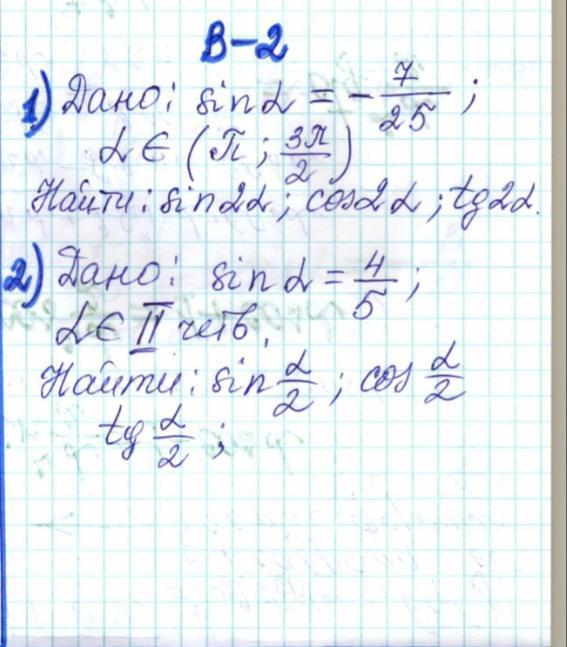 В-2
1) Дано: sin α = -7/25;
α ∈ (π; 3π/2)
Найти: sin2α; cos2α; tg2α.
2) Дано: sin α = 4/5;
α ∈ II четв.
Найти: sin α/2; cos α/2
tg α/2;